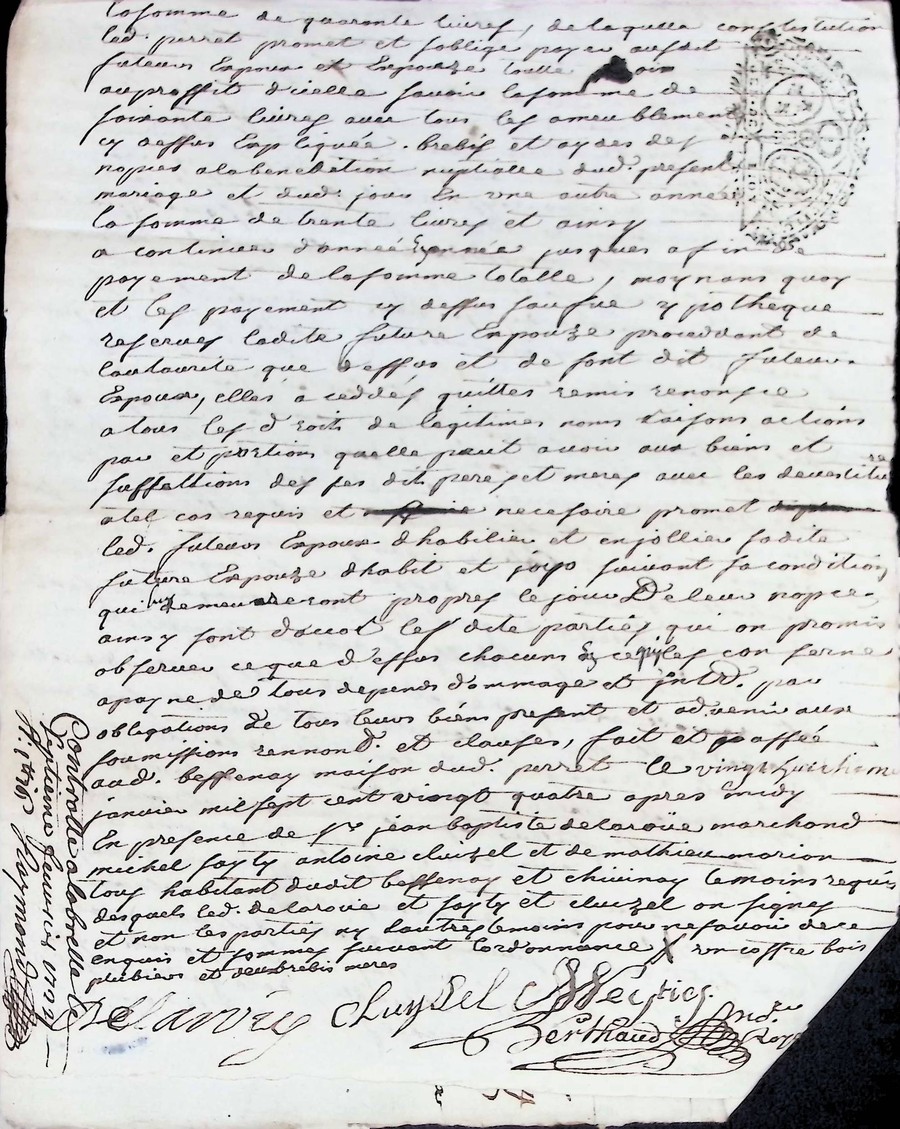 la somme de quarante livres, de laquelle constitution
led. perret promet et soblige payer ausdit
futeurs Expoux et Expouze toutte
au proffit d'icelle savoir la somme de
soixante livres avec tous les ameublement
cy dessus Expliquée. brebis et aydes des
nopces a la benedition nuptialle dud. present
mariage et dud. jour En une autre année
la somme de trente livres et ainsy
a continuer d'année En année jusques a fin de
payement de la somme totalle, moynans quoy
et les payement cy dessus sauf sue ypotheque
reserves ladite future Expouze procedant de
lautaurite que dessus et de sont dit futeur
Expoux, elles a ceddés quittes remis renonsce
a tous les d'roits de legitimes noms raisons actions
par et portions quelle peut avoir aux biens et
suffettions des ses dit peres et meres avec les devestiture
a tel cas requis et necesaire promet
led. futeurs Expoux dhabilier et enjollier sadite
future Expouze dhabit et joyo suivant sa condition
qui luy demeureront propres le jour De leur nopces,
ainsy sont d'accot les dite parties qui on promis
observer ce que d'essus chacuns En ce qui les conserne
a payne de tous depends d'ommage et intd. par
obligations de tous leurs biens present et advenir aux
soumissions rennond. et clauses, fait et passée
aud. bessenay maison dud. perret le vingt huichieme
janvier mil sept cent vingt quatre apres midy
En presence de Sr jean baptiste delaroüe marchand
michel fayty antoine cluizel et de mathieu marion
tous habitant dudit bessenay et chivinay temoins requis
desquels led. delaroüe et fayty et cluizel on signes
et non les parties ny d'autres temoins pour ne savoir de ce
enquis et sommes suivant l'ordonnance X un coffre bois
plubiers et deux brebis meres
Delarouë Cluyzel
Berthaud No.re Roy
Controlle a la bresle le
septieme fevrier 1724
Raymond